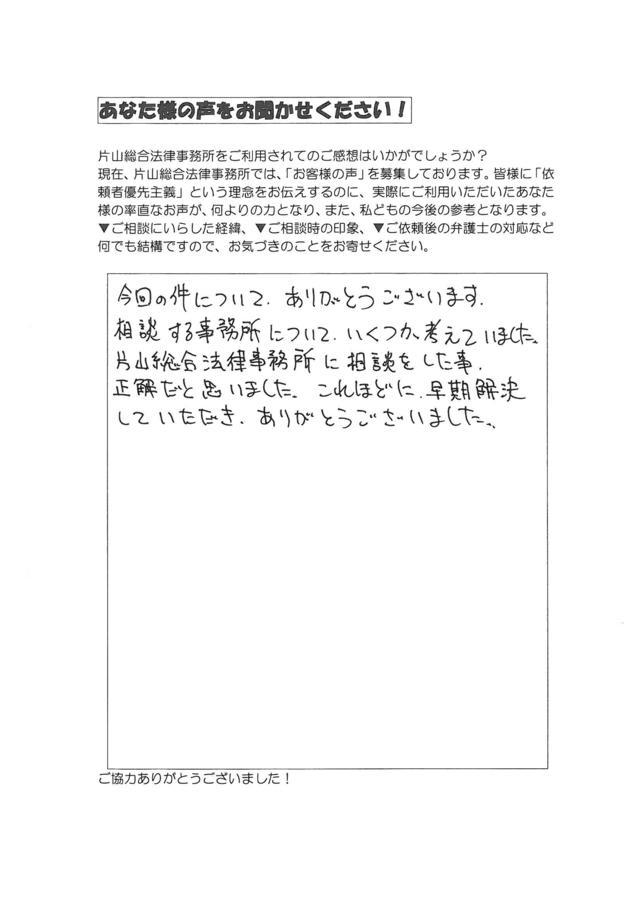 あなた様の声をお聞かせください！
片山総合法律事務所をご利用されてのご感想はいかがでしょうか？
現在、片山総合法律事務所では、「お客様の声」を募集しております。皆様に「依
頼者優先主義」という理念をお伝えするのに、実際にご利用いただいたあなた
様の率直なお声が、何よりの力となり、また、私どもの今後の参考となります。
▼ご相談にいらした経緯、▼ご相談時の印象、▼ご依頼後の弁護士の対応など
何でも結構ですので、お気づきのことをお寄せください。
今回の件について、ありがとうございます。
相談する事務所について、いくつか、考えていました。
片山総合法律事務所に相談をした事、
正解だと思いました。これほどに、早期解決
していただき、ありがとうございました。
ご協力ありがとうございました！